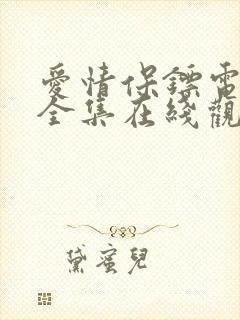 愛情保鏢電
全集在綫觀
黛蜜兒